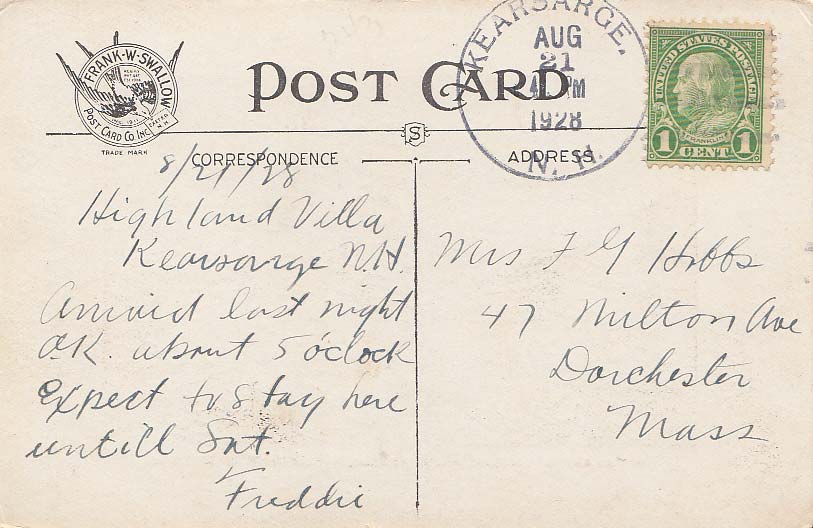 FRANK-W-SWALLOW
POST CARD CO. INC.
TRADE MARK
POST CARD
KEARSARGE,
AUG
21
M
1928
N. H.
UNITED STATES POSTAGE
FRANKLIN
1 CENT 1
S
CORRESPONDENCE
ADDRESS
8/21/28
Highland Villa
Kearsarge NH.
Arrived last night
O.K. about 5 o'clock
Expect to stay here
untill Sat.
Freddie
Mrs F G Hobbs
47 Milton Ave
Dorchester
Mass